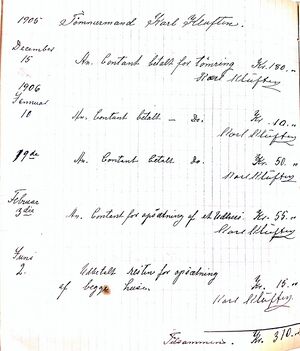 1905 Tömmermand Karl Kluften.
December
15 An. Contant betalt for tömring Kr. 180. "
Karl Kluften
1906
Januar
10 An. Contant betalt - Do. Kr. 10. "
Karl Kluften
19de An. Contant betalt Do. Kr. 50. "
Karl Kluften
Februar
3die An. Contant for opsætning af et Udhus Kr. 55. "
Karl Kluften
Juni
2. Udbetalt resten for opsætning
af begge huse. Kr. 15. "
Karl Kluften
Tilsammens. Kr. 310. "